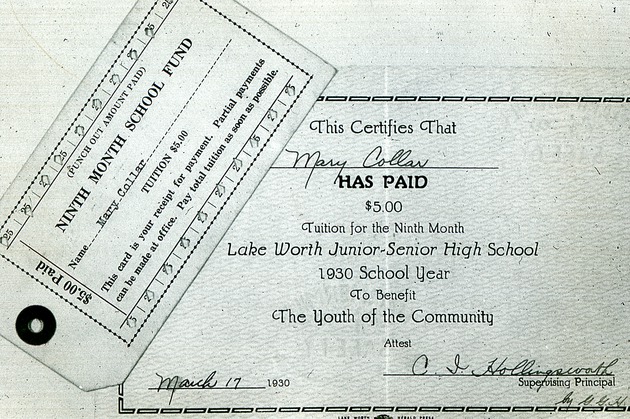 25 25 25 25 25 25 25 25 25
(PUNCH OUT AMOUNT PAID)
NINTH MONTH SCHOOL FUND
Name Mary Collar
TUITION $5.00
This card is your receipt for payment. Partial payments
can be made at office. Pay total tuition as soon as possible.
$5.00 Paid
This Certifies That
Mary Collar
HAS PAID
$5.00
Tuition for the Ninth Month
Lake Worth Junior-Senior High School
1930 School Year
To Benefit
The Youth of the Community
Attest
C. I. Hollingsworth
March 17 1930
Supervising Principal
by
LAKE WORTH HERALD PRESS